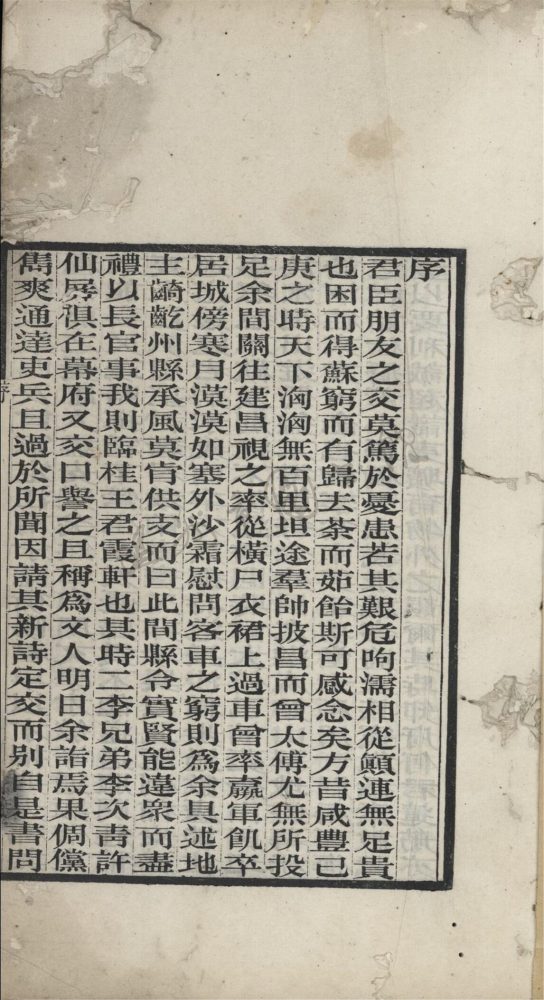 序
君臣朋友之交莫篤於憂患若其艱危呴濡相從顛連無足貴
也困而得蘇窮而有歸去荼而茹飴斯可感念矣方昔咸豐己
庚之時天下洶洶無百里坦途羣帥披昌而曾太傅尤無所投
足余間關往建昌視之率從橫尸衣裙上過車曾率羸軍飢卒
居城傍寒月漠漠如塞外沙霜慰問客車之窮則爲余具述地
主齮齕州縣承風莫肯供支而曰此間縣令實賢能違衆而盡
禮以長官事我則臨桂王君霞軒也其時二李兄弟李次青許
仙屏俱在幕府又交口譽之且稱爲文人明日余詣焉果倜儻
雋爽通達吏兵且過於所聞因請其新詩定交而别自是書問